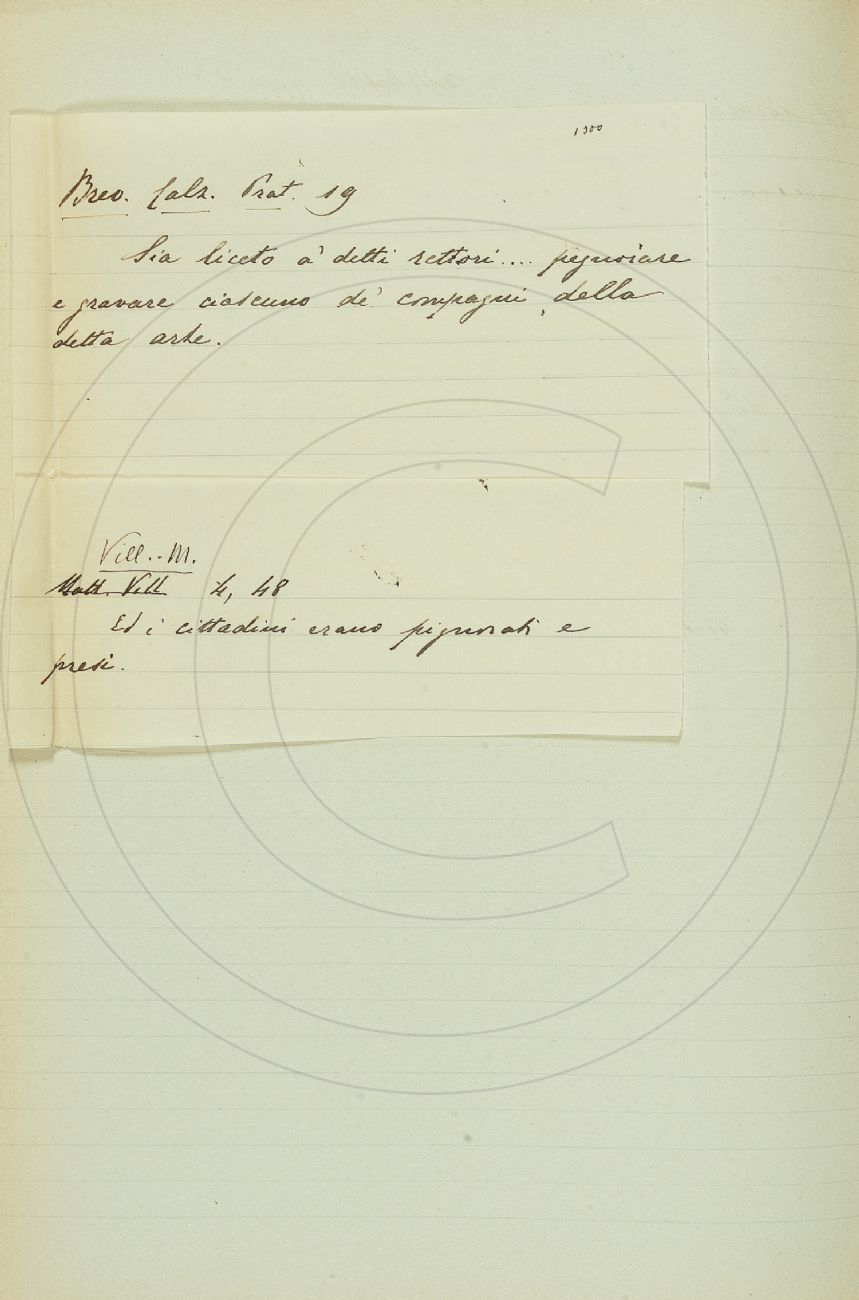 1300
Brev. Calz. Prat. 19
Sia liceto a' detti rettori.... pegnoiare
e gravare ciascuno de' compagni della
detta arte.
Vill.. M.
Matt. Vill. 4, 48
Ed i cittadini erano pignorati e
presi.